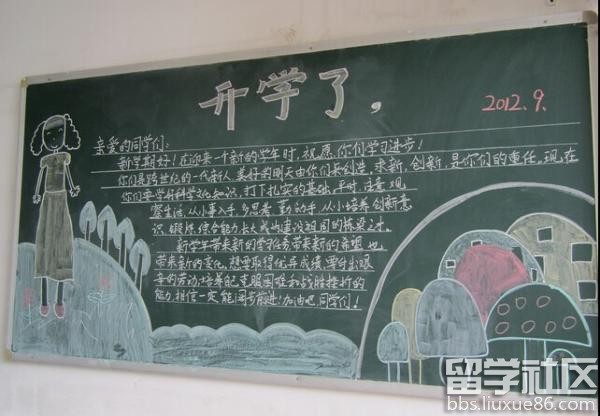 开学了，
2012.9.
亲爱的同学们：
新学期好！在迎来一个新的学年时，祝愿你们学习进步！
你们是跨世纪的一代新人，美好的明天由你们来创造，求新，创新，是你们的责任，现在
你们要学好科学文化知识，打下扎实的基础，平时，注意观
察生活，从小事入手，多思考，勤动手，从小培养创新意
识，锻炼综合能力，长大成为建设祖国的栋梁之才。
新学年带来新的学习任务，带来新的希望，也
带来新的变化，想要取得优异成绩，要付出艰
辛的劳动，培养自己克服困难和战胜挫折的
能力，相信一定能同步前进！加油吧，同学们！
留学社区
bbs.liuxue86.com